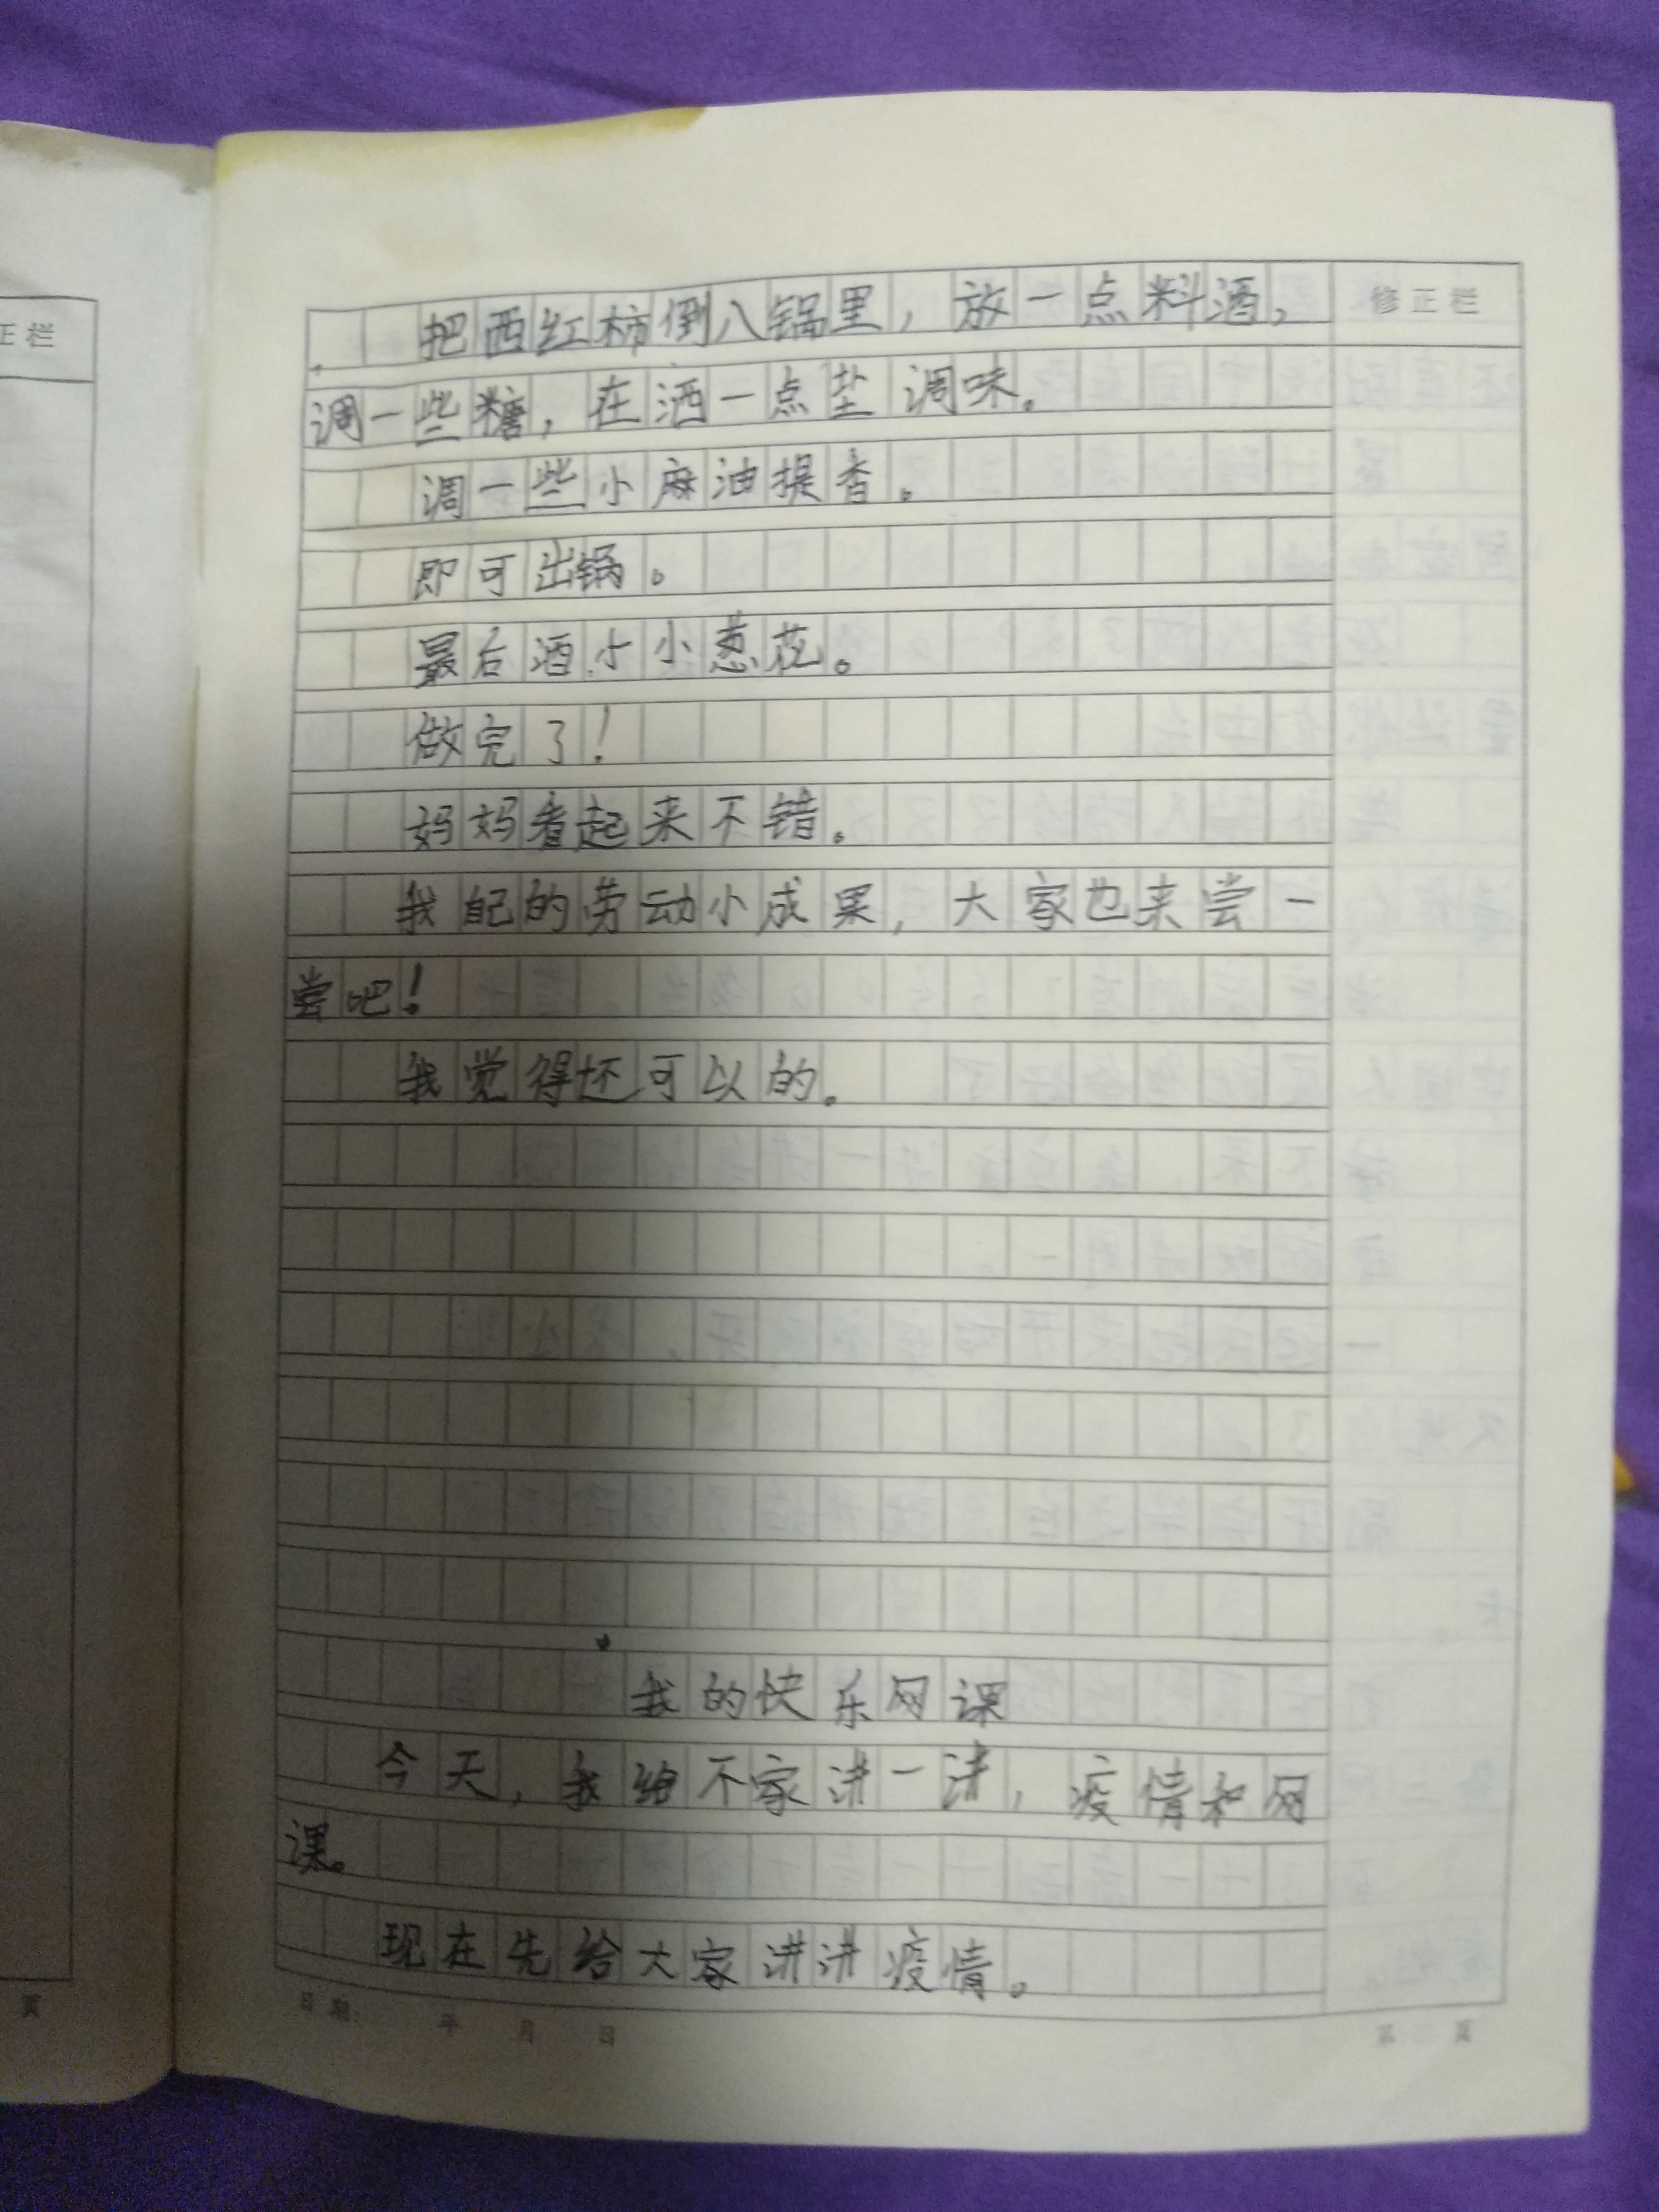 正栏
修正栏
把西红柿倒八锅里，放一点料酒，
调一些糖，在洒一点盐调味。
调一些小麻油提香。
即可出锅。
最后酒小小葱花。
做完了！
妈妈看起来不错。
我自己的劳动小成果，大家也来尝一
尝吧！
我觉得还可以的。
我的快乐网课
今天，我给不家讲一讲，疫情和网
课。
现在先给大家讲讲疫情。
日期： 年 月 日
第 页
页